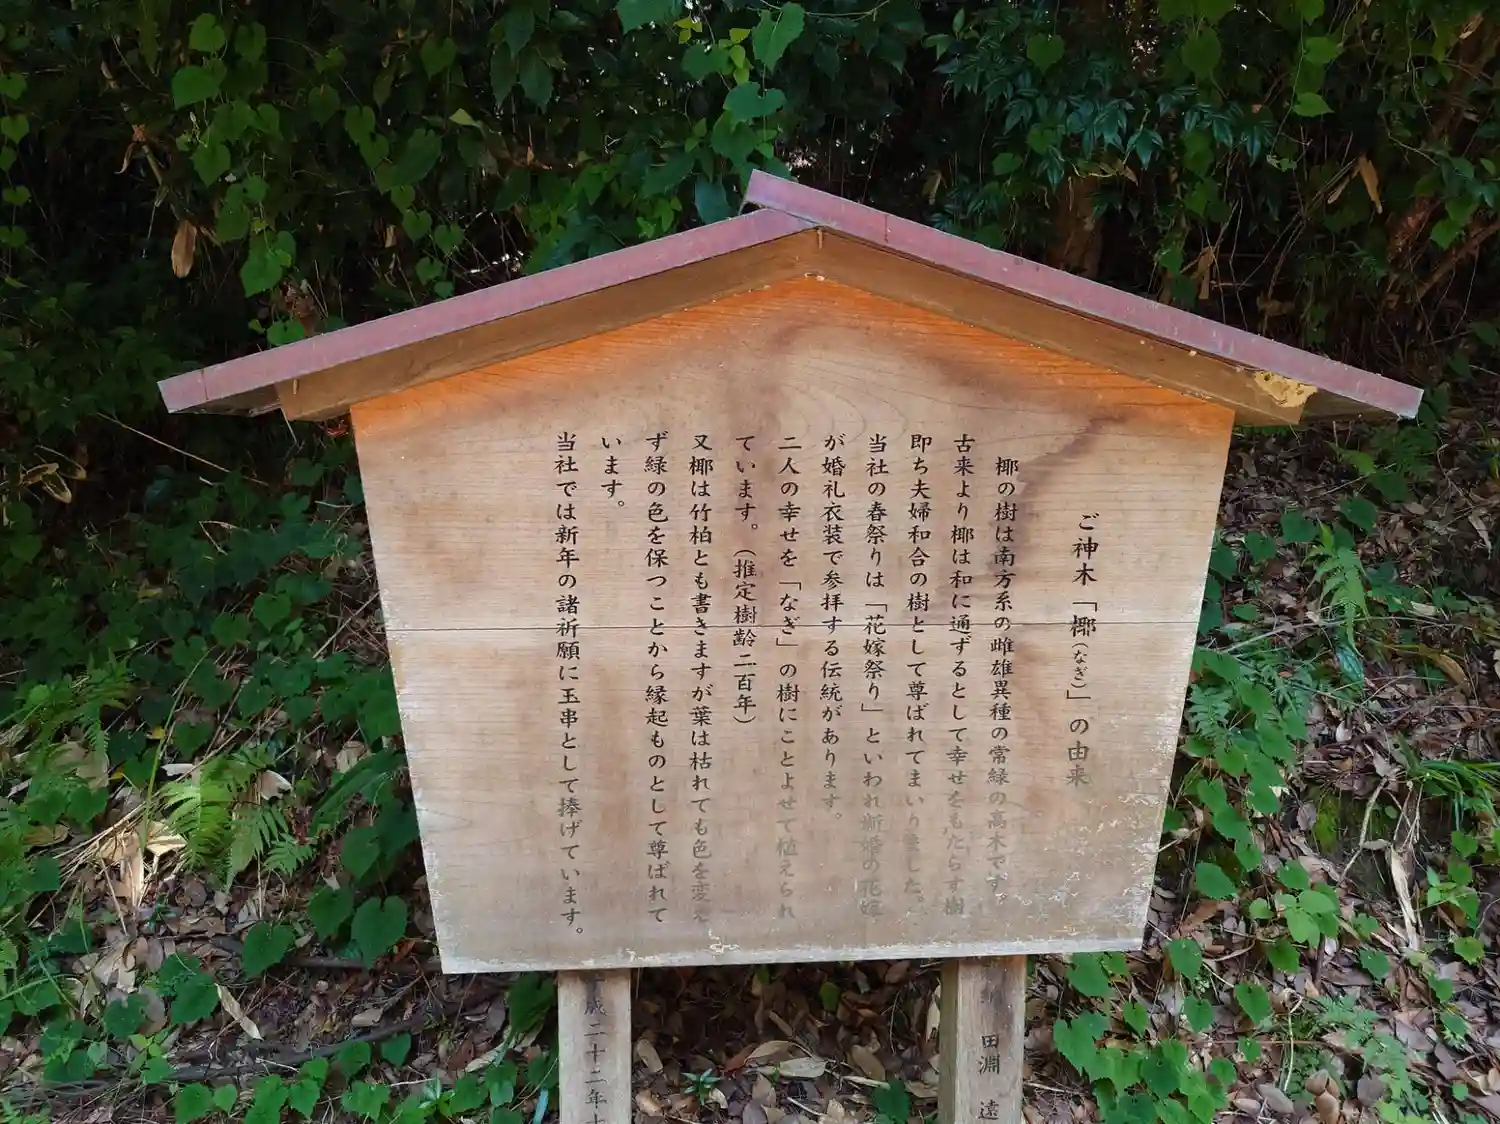 ご神木「梛(なぎ)」の由来
梛の樹は南方系の雌雄異種の常緑の高木です。
古来より梛は和に通ずるとして幸せをもたらす樹
即ち夫婦和合の樹として尊ばれてまいりました。
当社の春祭りは「花嫁祭り」といわれ新婚の花嫁
が婚礼衣装で参拝する伝統があります。
二人の幸せを「なぎ」の樹にことよせて植えられ
ています。(推定樹齢二百年)
又梛は竹柏とも書きますが葉は枯れても色を変え
ず緑の色を保つことから縁起ものとして尊ばれて
います。
当社では新年の諸祈願に玉串として捧げています。
田淵 遠
歳二十二年十